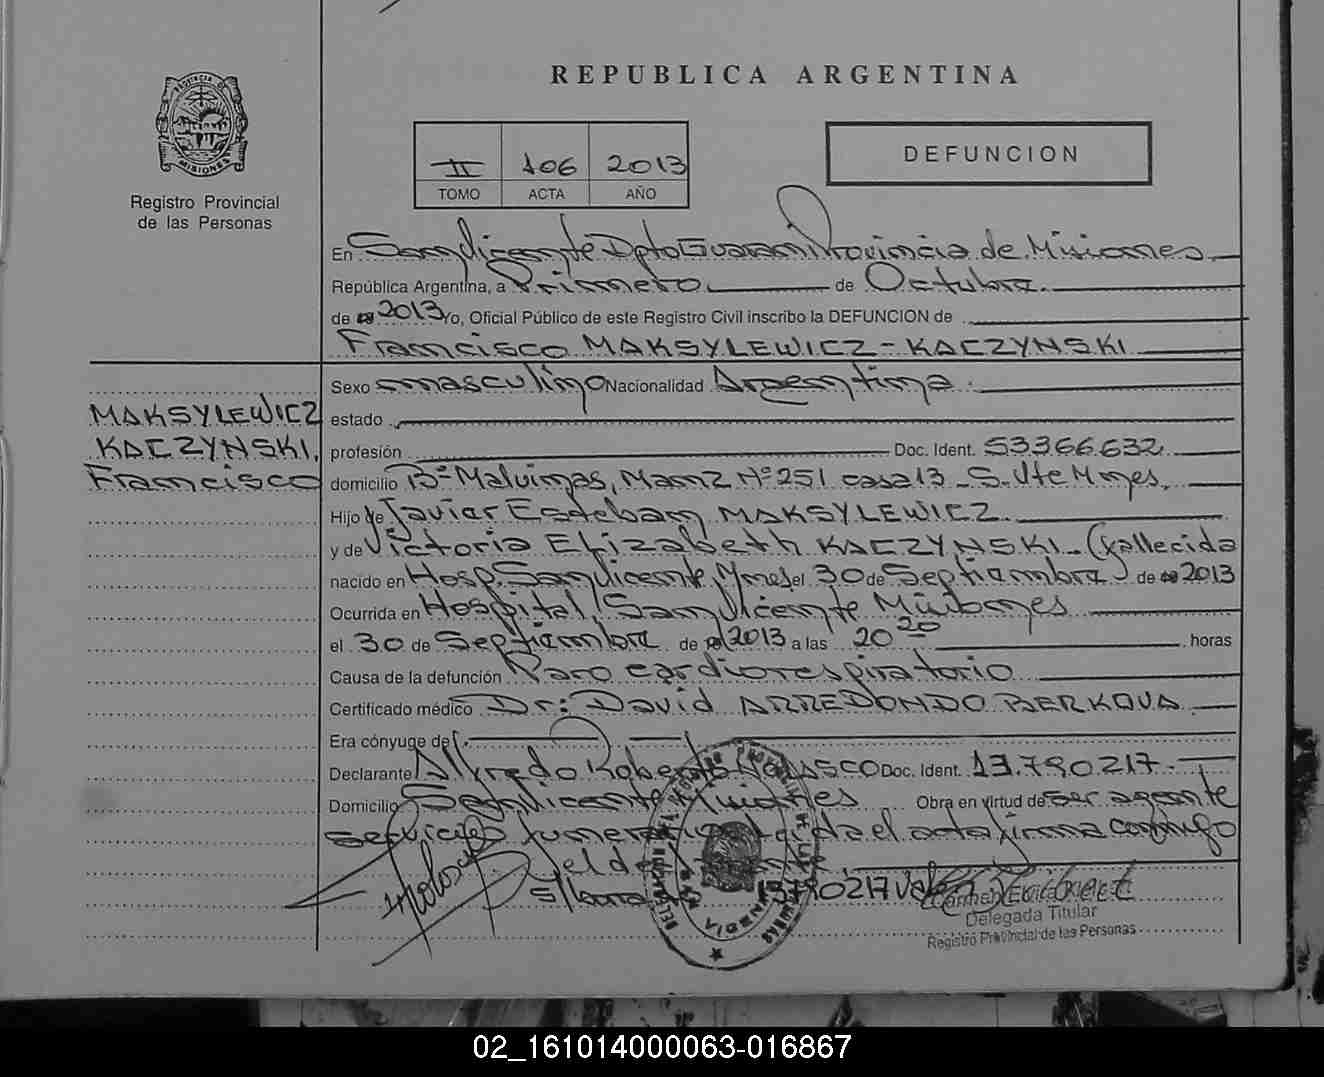 REPUBLICA ARGENTINA
PROVINCIA D MISIONES
Registro Provincial
de las Personas
II 106 2013
TOMO ACTA AÑO
DEFUNCION
En San Vicente Dpto Guarani Provincia de Misiones
República Argentina, a Primero de Octubre
de 2013 Yo, Oficial Público de este Registro Civil inscribo la DEFUNCION de
Francisco MAKSYLEWICZ - KACZYNSKI
MAKSYLEWICZ
KACZYNSKI,
Francisco
Sexo masculino Nacionalidad Argentina
estado
profesión Doc. Ident. 53366.632
domicilio Bº Malvinas, Manz Nº 251 casa 13 - S. Vte Mnes,
Hijo de Javier Esteban MAKSYLEWICZ
y de Victoria Elizabeth KACZYNSKI - (fallecida
nacido en Hosp. San Vicente Mnes el 30 de Septiembre de 2013
Ocurrida en Hospital San Vicente Misiones
el 30 de Septiembre de 2013 a las 20 20 horas
Causa de la defunción Paro cardiorespiratorio
Certificado médico Dr: David ARREDONDO BERKOVA
Era cónyuge de
Declarante Alfredo Roberto Doc. Ident. 13.790217
Domicilio San Vicente Misiones Obra en virtud de ser agente
servicios leida el acta firma conmigo
el de
S/ 13790217 Vale
Delegada Titular
Registro Provincial de las Personas
02_161014000063-016867